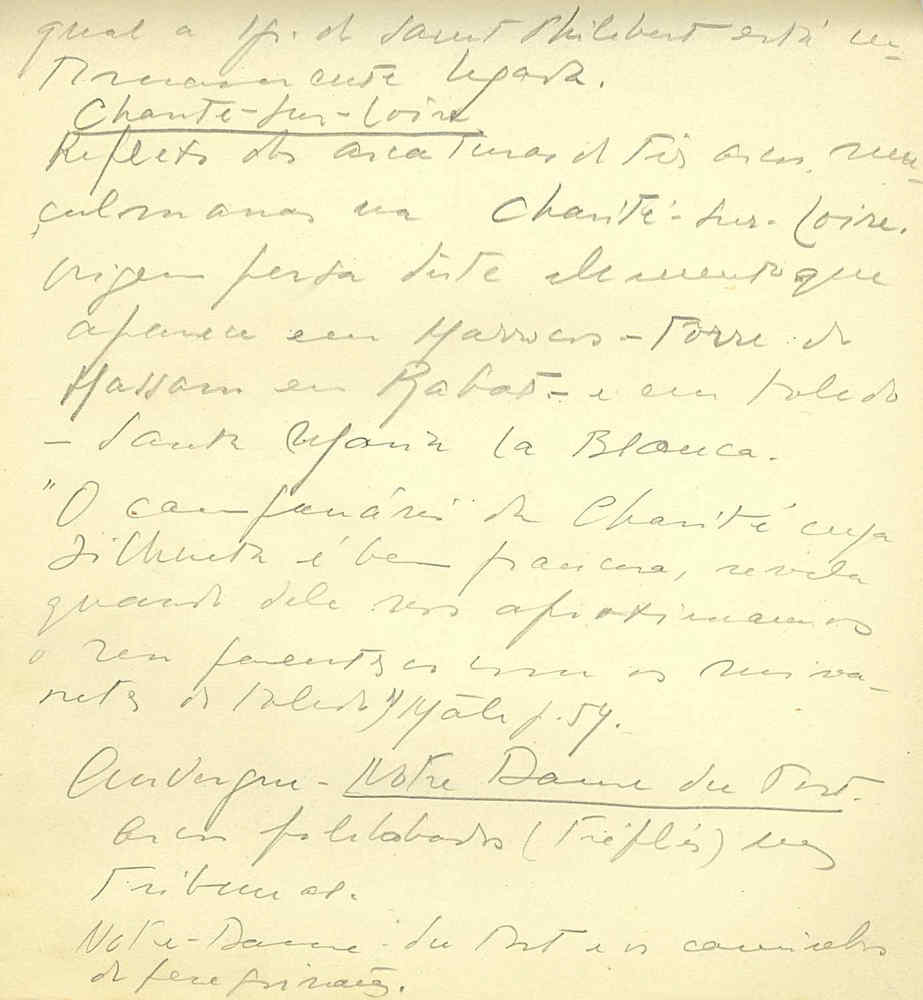 qual a Ig. de Saint Philibert está in-
timamente ligada.
Charité-sur-Loire
Reflexo das arcaturas de três arcos, mu-
çulmanas na Charité-sur-Loire.
origem persa deste elemento que
aparece em Marrocos - Torre de
Hassam em Rabat - e em Toledo
- Santa Maria la Blanca.
"O campanário da Charité cuja
silhueta é bem francesa, revela
quando dele nos aproximamos
o seu parentesco com os mina-
retes de Toledo" Mâle p. 54.
Auvergne - Notre Dame du Port.
arcos polilobados (Tréflés) nas
Tribunas.
Notre-Dame-du Port e os caminhos
de peregrinação.